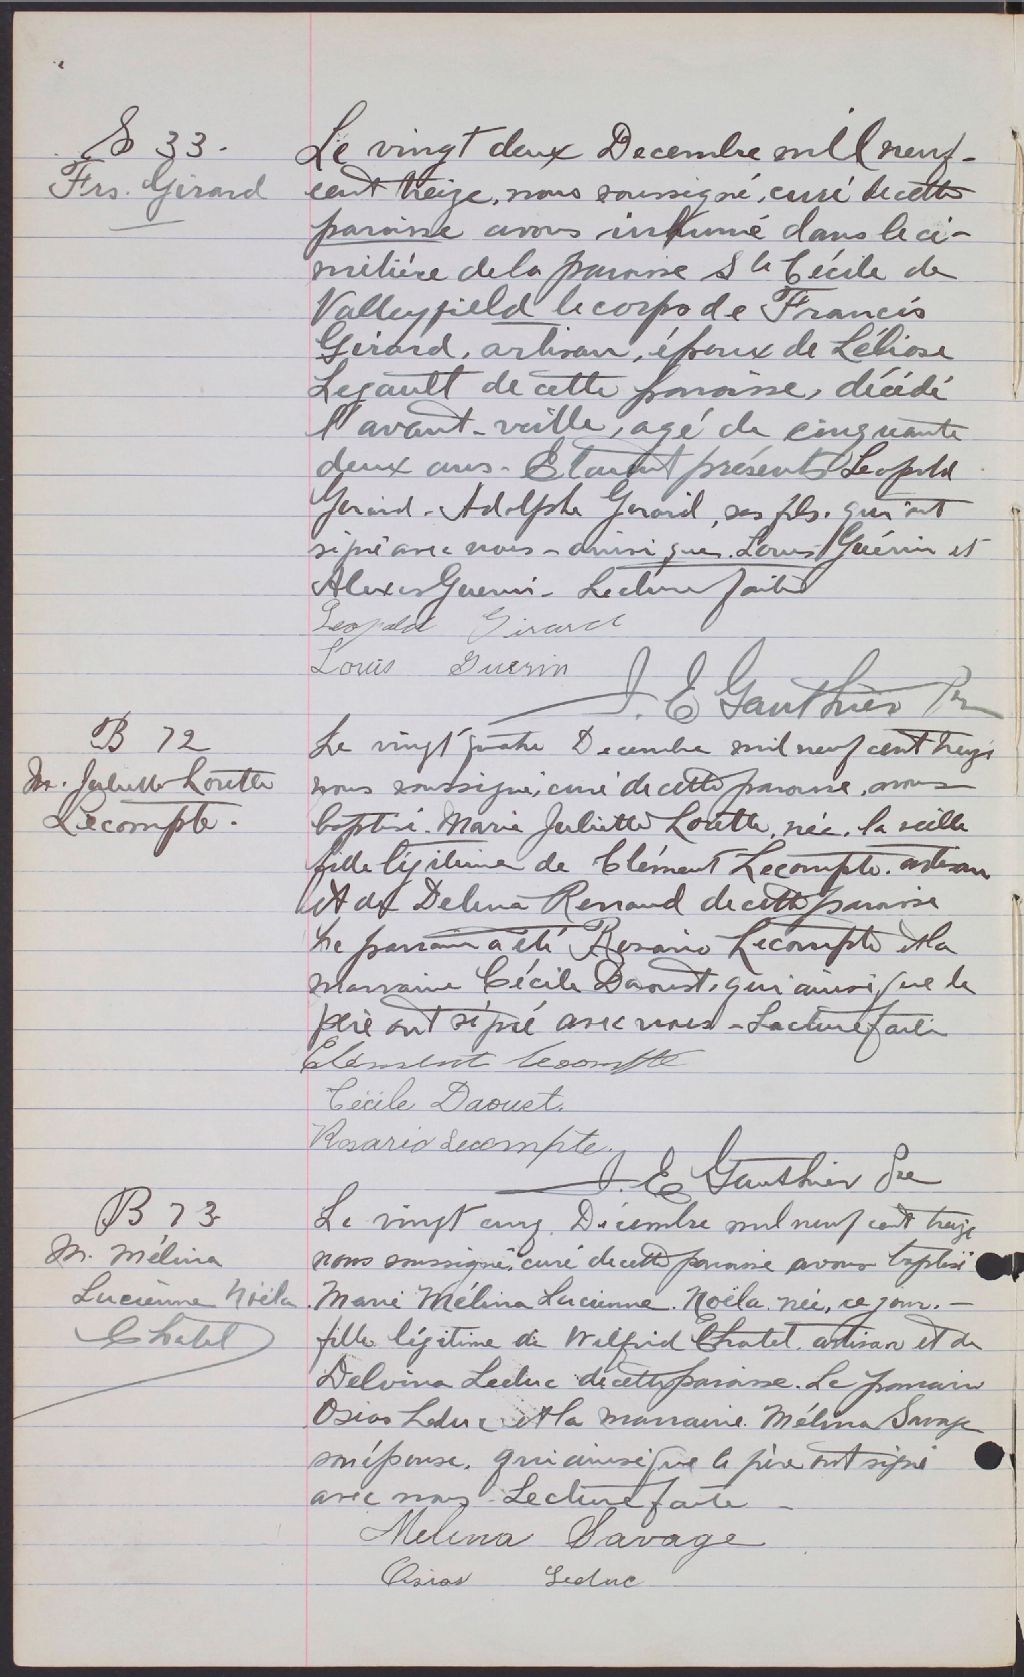 S 33.
Frs. Girard
Le vingt deux Decembre mil neuf-
cent treize, nous soussigné, curé de cette
paroisse avons inhumé dans le ci-
metière de la paroisse Ste Cécile de
Valleyfield le corps de Francis
Girard, artisan, époux de
Legault de cette paroisse, décédé
l'avant-veille, agé de cinquante
deux ans - Etaient présents Leopold
Girard - Adolphe Girard, ses fils. qui ont
signé avec nous - ainsi que Louis Guérin et
Alexis Guerin - Lecture faite
Leopold Girard
Louis Guerin
J. E. Gauthier Ptre
B 72
M. Juliette Lorette
Lecompte.
Le vingt quatre Decembre mil neuf cent treize
nous soussigné, curé de cette paroisse, avons
baptisé Marie Juliette Lorette, née, la veille
fille légitime de Clément Lecompte. artisan
et de Delena Renaud de cette paroisse
Le parrain a été Rosario Lecompte et la
marraine Cécile Daoust, qui ainsi que le
père ont signé avec nous - Lecture faite
Clément Lecompte
Cécile Daoust.
Rosario Lecompte.
J. E. Gauthier Ptre
B 73
M. Mélina
Lucienne Noëla
Chatel
Le vingt cinq Décembre mil neuf cent treize
nous soussigné, curé de cette paroisse avons baptisé
Marie Mélina Lucienne Noëla née, ce jour. -
fille légitime de Wilfrid Chatel. artisan et de
Delvina Leduc de cette paroisse. Le parrain
Osias Leduc et la marraine Mélina Savage
son épouse, qui ainsi que le père ont signé
avec nous - Lecture faite -
Melina Savage
Osias Leduc